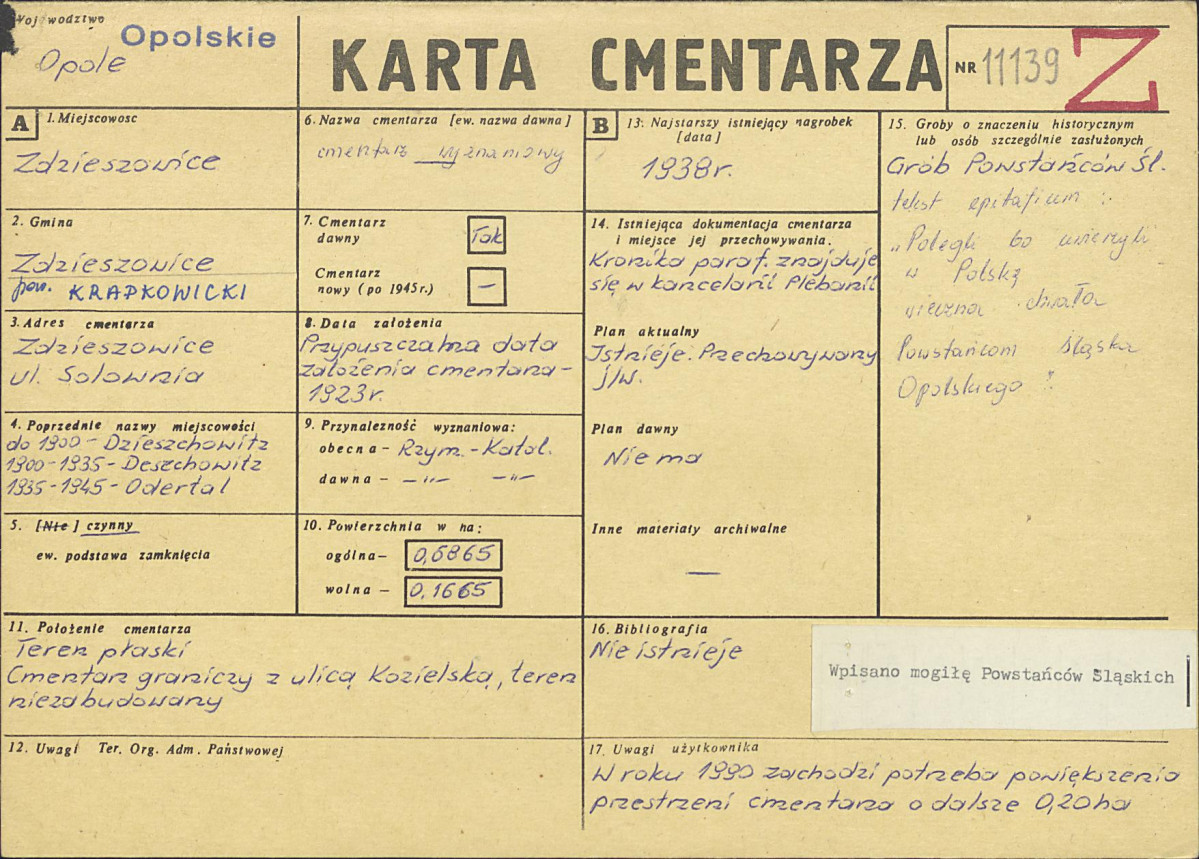 Województwo
Opolskie
Opole
KARTA CMENTARZA
NR 11139
Z
A
1. Miejscowosc
Zdzieszowice
2. Gmina
Zdzieszowice
pow. KRAPKOWICKI
3. Adres cmentarza
Zdzieszowice
ul. Solownia
4. Poprzednie nazwy miejscowości
do 1900 - Dzieszchowitz
1900-1935 - Deszchowitz
1935-1945 - Odertal
5. [Nie] czynny
ew. podstawa zamknięcia
6. Nazwa cmentarza [ew. nazwa dawna]
cmentarz wyznaniowy
7. Cmentarz
dawny
Tak
Cmentarz
nowy (po 1945 r.)
—
8. Data założenia
Przypuszczalna data
założenia cmentarza -
1923 r.
9. Przynależność wyznaniowa:
obecna - Rzym. - Katol.
dawna - — „ — — „ —
10. Powierzchnia w ha:
ogólna — 0,6865
wolna — 0,1665
B
13. Najstarszy istniejący nagrobek
[data]
1938 r.
14. Istniejąca dokumentacja cmentarza
i miejsce jej przechowywania.
Kronika paraf. znajduje
się w kancelarii Plebanii
Plan aktualny
Istnieje. Przechowywany
j/w.
Plan dawny
Nie ma
Inne materiały archiwalne
—
15. Groby o znaczeniu historycznym
lub osób szczególnie zasłużonych
Grób Powstańców Śl.
tekst epitafium :
„Polegli bo wierzyli
w Polskę
wieczna chwała
Powstańcom Śląska
Opolskiego".
11. Położenie cmentarza
Teren płaski
Cmentarz graniczy z ulicą Kozielską, teren
niezabudowany
12. Uwagi Ter. Org. Adm. Państwowej
16. Bibliografia
Nie istnieje
Wpisano mogiłę Powstańców Śląskich
17. Uwagi użytkownika
W roku 1990 zachodzi potrzeba powiększenia
przestrzeni cmentarza o dalsze 0,20 ha